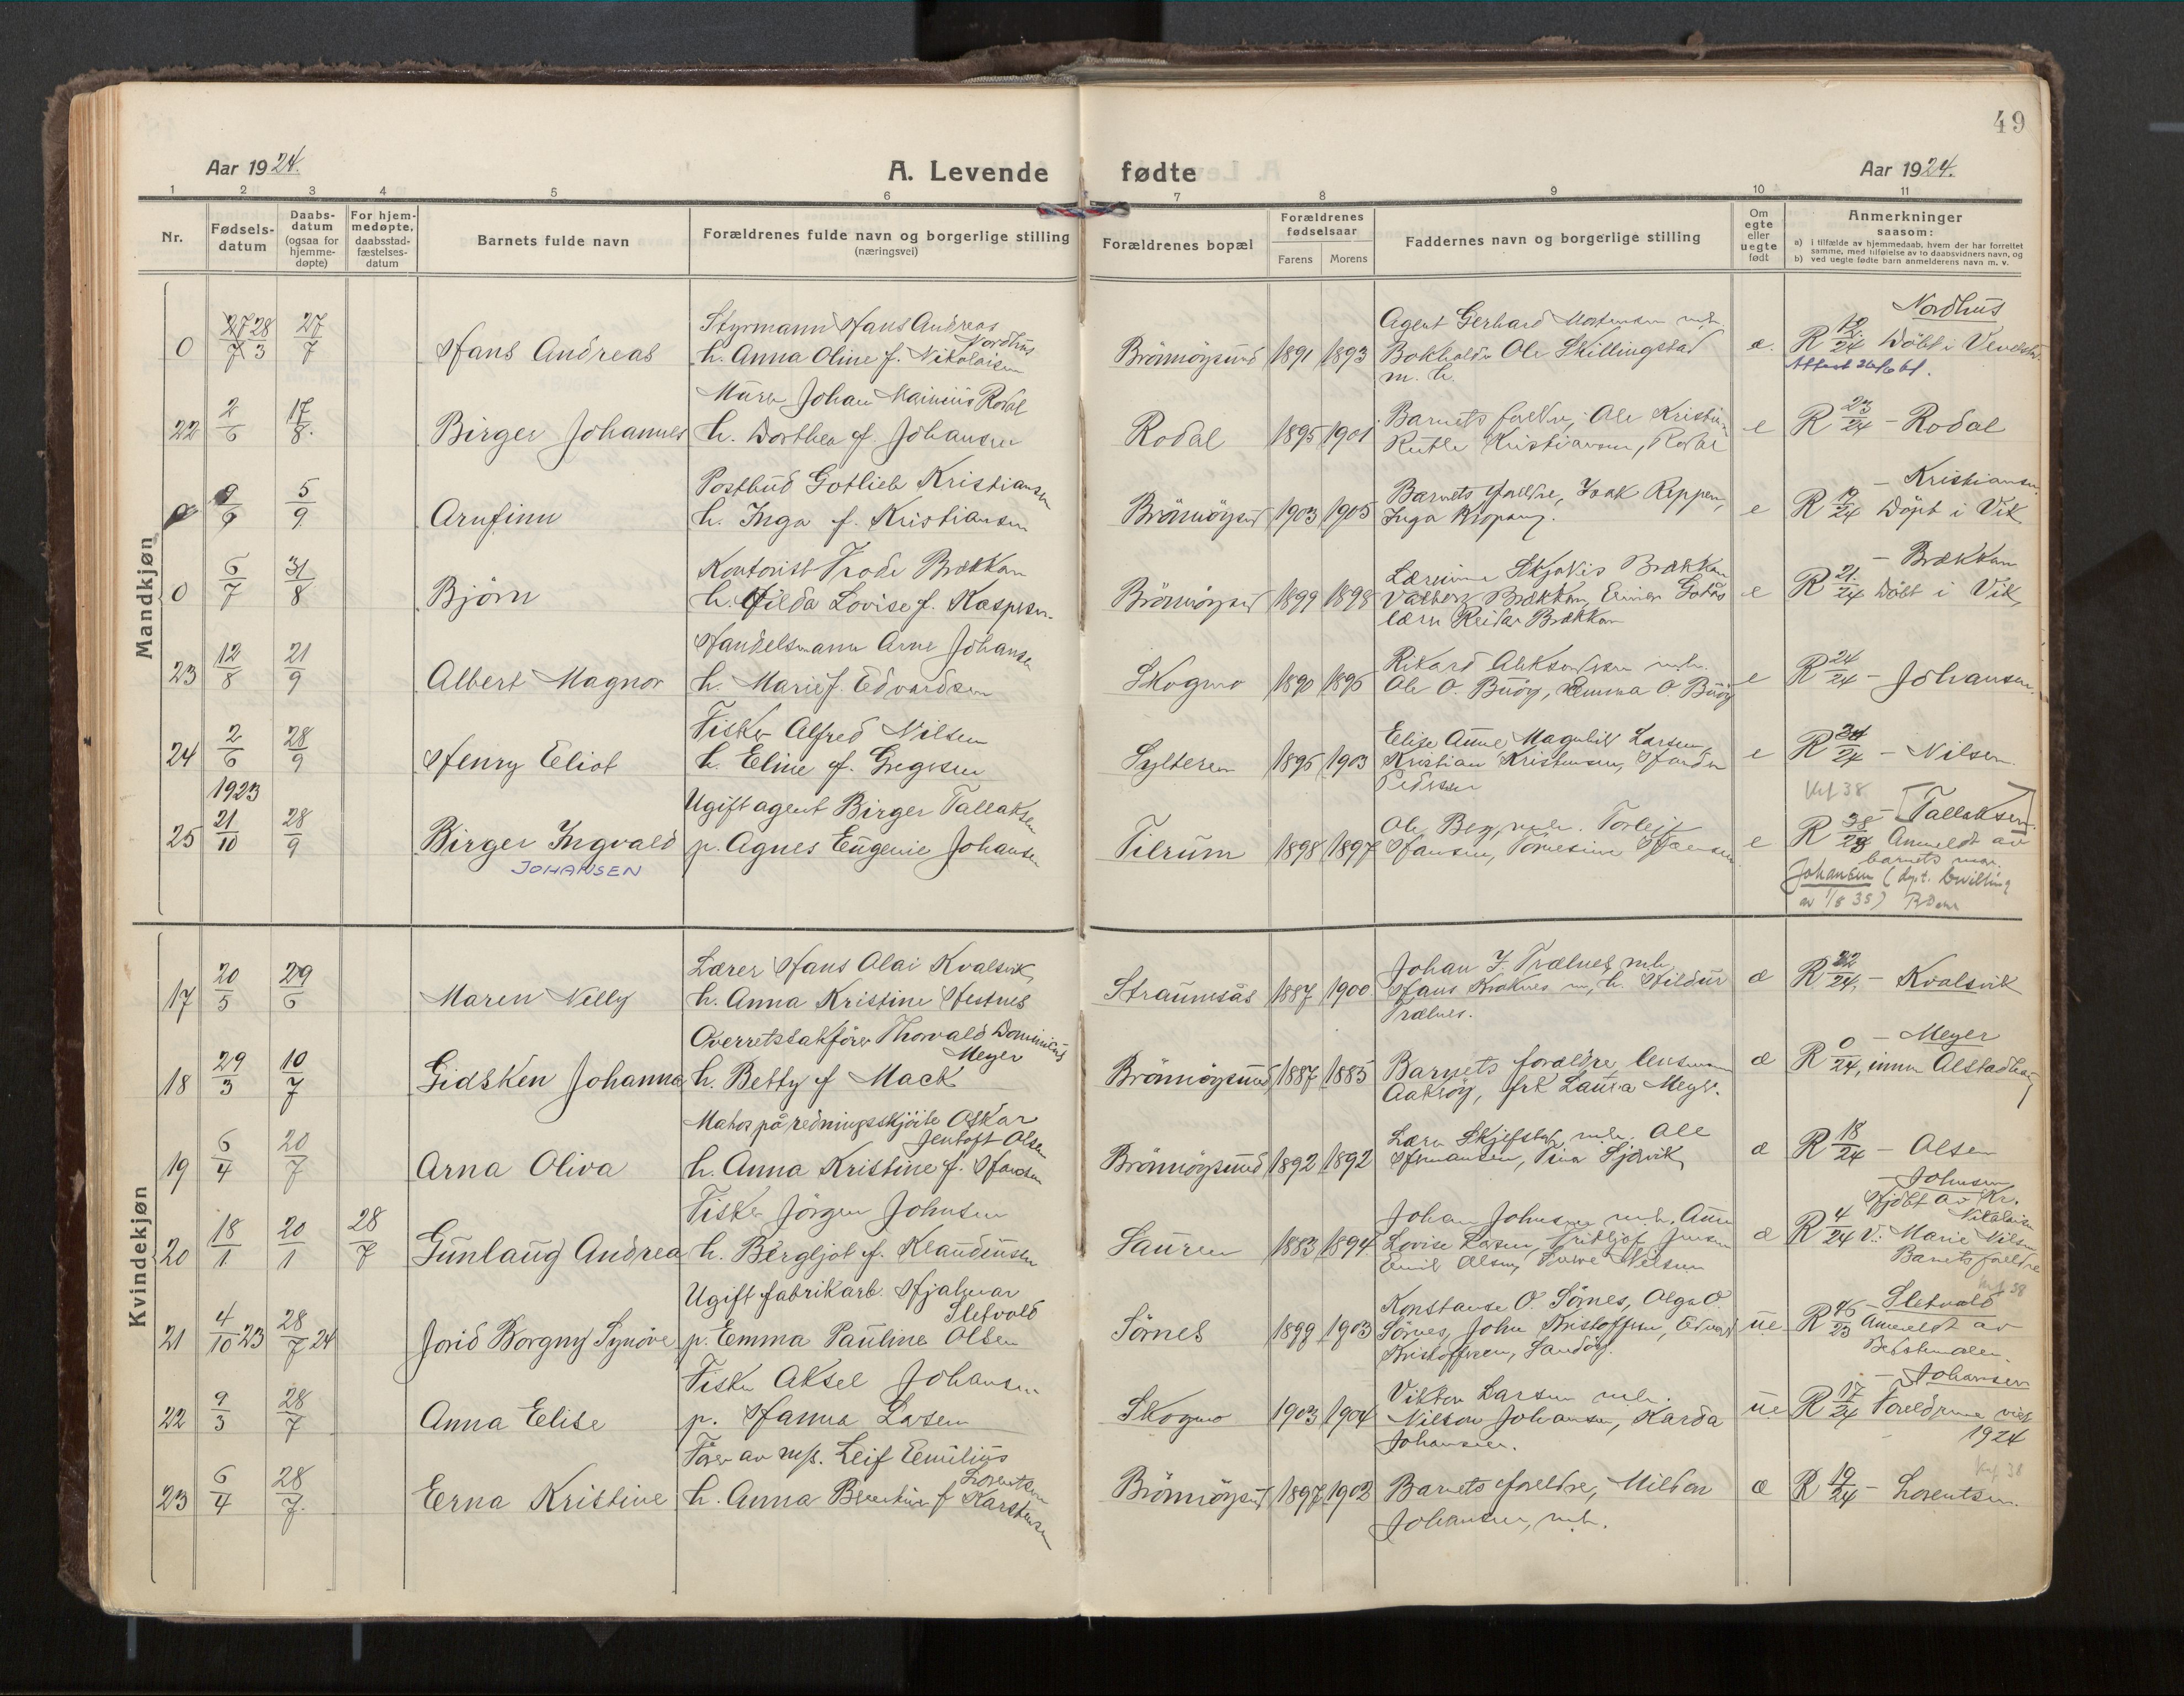 49
Aar 1924.
A. Levende fødte
Aar 1924.
1 2 3 4 5 6 7 8 9 10 11
Nr.
Fødselsdatum
Daabsdatum (ogsaa for hjemmedøpte)
For hjemmedøpte, daabsstadfæstelsesdatum
Barnets fulde navn
Forældrenes fulde navn og borgerlige stilling
(næringsvei)
Forældrenes bopæl
Forældrenes fødselsaar
Farens Morens
Faddernes navn og borgerlige stilling
Om egte eller uegte født
Anmerkninger
saasom:
a) i tilfælde av hjemmedaab, hvem der har forrettet samme, med tilføielse av to daabsvidners navn, og
b) ved uegte fødte barn anmelderens navn m. v.
Mandkjøn
0 27/7 28/3 27/7 Hans Andreas
Styrmann Hans Andreas Nordhus
h. Anna Oline f. Nikolaisen
Brönnöysund 1891 1893
Agent Gerhard Mortensen m.h.
Bokholder Ole Skillingstad
m. h.
æ.
Nordhus
R 19/24 Döbt i Vevelstad
Attest 26/6 61.
22 2/6 17/8. Birger Johannes
Johan Mainius Rodal
h. Dorthea f. Johansen
Rodal 1895 1901
Barnets foreldre, Ole Kristian
Kristiansen, Rodal
e R 23/24 - Rodal
9/6 5/9 Arnfinn
Postbud Gotlieb Kristiansen
h. Inga f. Kristiansen
Brönnöysund 1903 1905
Barnets foreldre,
Inga
e - Kristiansen
R 19/24 Döpt i Vik
0 6/7 31/8 Björn
Kontorist Frode Brækkan
h. Hilda Lovise f. Kaspersen
Brönnöysund 1899 1898
Lærerinne Brækkan
Valborg Brækkan, Einar
lærer Reidar Brækkan
e - Brækkan
R 21/24 Döbt i Vik
23 12/8 21/9 Albert Magnor
Handelsmann Arne Johansen
h. Marie f. Edvardsen
Skogmo 1890 1895
Rikard Aleksandersen m.h.
Ole O. Buöy, Emma O. Buöy
e R 24/24 - Johansen.
24 2/6 28/9 Henry Eliot
Fisker Alfred Nilsen
h. Eline f. Gregersen
Sylteren 1895 1903
Elise Anne, Magnhild Larsen,
Kristian Kristensen,
Pedersen
e R 24 - Nilsen.
Kf 38
1923
25 21/10 28/9 Birger Ingvald
JOHANSEN
Ugift agent Birger Tallaksen
p. Agnes Eugenie Johansen
Tilrum 1898 1897
Ole m.h. Torleif
Hansen,
e R 38/23 - [Tallaksen]
Anmeldt av
barnets mor.
Johansen
Kvindekjøn
17 20/5 29/6 Maren Nelly
Lærer Hans Olai Kvalsvik
h. Anna Kristine Hestnes
Straumsås 1887 1900
Johan J. Trælnes m.h.
Hans m. h. Hildur
Trælnes.
æ R 22/24. - Kvalsvik
18 29/3 10/7 Gidsken Johanna
Overretssakförer Thorvald Dominicus
Meyer
h. Betty f Mack
Brönnöysund 1887 1885
Barnets foreldre,
frk Laura Meyer.
æ - Meyer
R 0/24, innm Alstadhaug
19 6/4 20/7 Arna Oliva
Matros på redningsskjöite Oskar
Jentoft Olsen
h. Anna Kristine f. Hansen
Brönnöysund 1892 1892
Lærer Skjefstad m.h. Ole
Hermansen,
æ R 18/24 - Olsen
20 18/1 20/1 28/7 Gunlaug Andrea
Fisker Jörgen Johnsen
h. Bergljot f. Klaudiusen
Sauren 1883 1894
Johan Johnsen m.h. Anne
Lovise Larsen, Jensen
Emil Olsen, Nilsen
æ - Johnsen
Hjdbt av Kr.
Nikolaisen
R 4/24 V: Marie Nilsen
Barnets foreldre
21 4/10 23 28/7 24 Jorid Borgny Synöve
Ugift fabrikarb. Hjalmar
Sletvold
p. Emma Pauline Olsen
Sörnes 1899 1903
Konstanse O. Sörnes, Olga O.
Sörnes, John Kristoffersen, Edvard
Kristoffersen, Sandöy.
ue R 46/23 - Sletvold
Anmeldt av
Bestemoren.
22 9/3 28/7 Anna Elise
Fisker Aksel Johansen
p. Hanna Larsen
Skogmo 1903 1904
Viktor Larsen m.h.
Johansen, Karda
Johansen.
ue - Johansen
R 17/24 Foreldrene viet
1924
Kf 38
23 6/4 28/7. Erna Kristine
Förer av Leif Emilius
Lorentsen
h. Anna f Karstensen
Brönnöysund 1897 1902
Barnets foreldre, Milton
Johansen, m.h.
æ R 19/24 - Lorentsen.